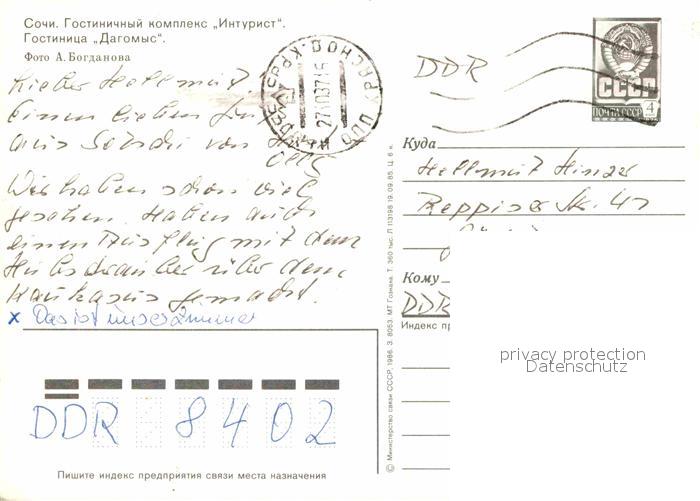 Сочи. Гостиничный комплекс „Интурист“.
Гостиница „Дагомыс“.
Фото А. Богданова
Lieber Hellmut!
Einen lieben Gruß
aus Sotschi von
Wir haben schon viel
gesehen. Haben auch
einen Ausflug mit dem
Hubschrauber über den
Kaukasus gemacht.
x Das ist unser Zimmer
DDR 8402
Пишите индекс предприятия связи места назначения
© Министерство связи СССР. 1986. З. 8053. МТ Гознака. Т. 360 тыс. Л 113198 19.09.85. Ц. 6 к.
DDR
СССР
ПОЧТА СССР 4
Куда
Hellmut Hinzer
Reppiser Str. 41
Кому
DDR
Индекс пр
privacy protection
Datenschutz